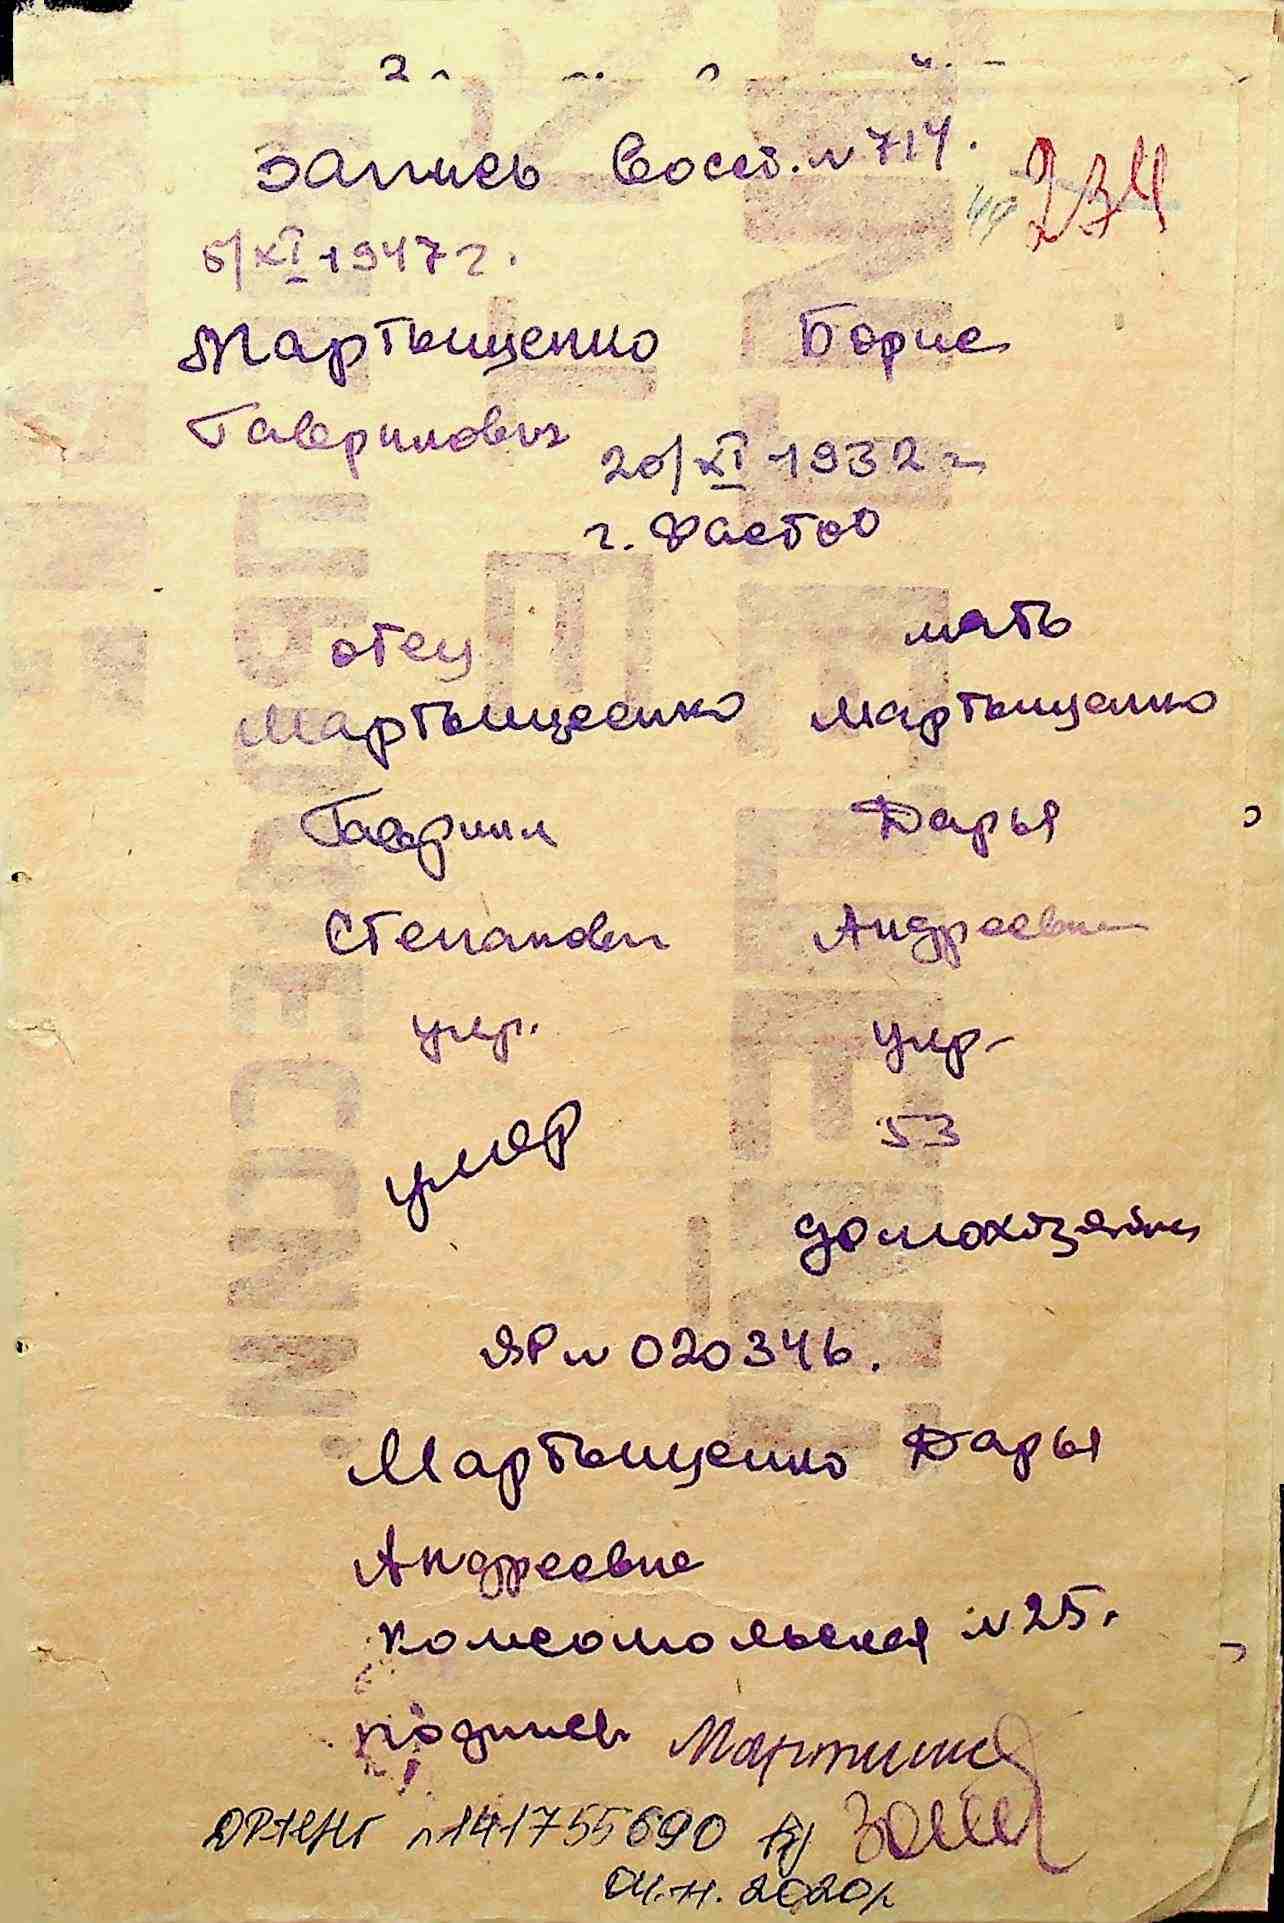 запись Восст. N 714.
274
5/XI 1947 г.
Мартыщенко Борис
Гаврилович
20/XI 1932 г
г. Фастов
отец мать
Мартыщеенко Мартыщенко
Гавриил Дарья
Степанович Андреевна
укр. укр.
умер 53
домохозяйка
ЯР N 020346.
Мартыщенко Дарья
Андреевна
Комсомольская N 25.
подпись
141755690
04.11.2020р